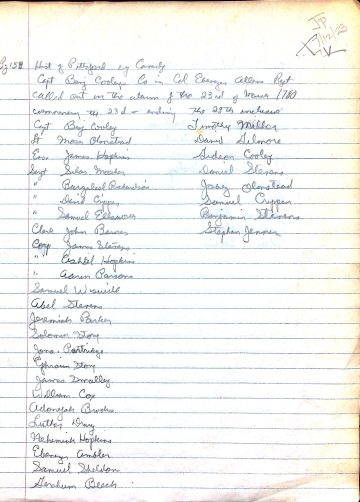 Pg 158 Hist of Pittsford by Caverly
Capt Benj Cooley Co in Col Ebenezer Allens Regt
called out on the alarm of the 23rd of 1780
commencing the 23d - ending the 28th inclusive
Capt Benj Cooley
Lt Moses Olmstead
Ens James Hopkins
Sergt Silas Mosher
" Barzilial Richardson
" David Crippen
" Samuel Ellsworth
Clark John Barnes
Corp James Stevens
" Eashbel Hopkins
" Aarin Parsons
Samuel Wiswill
Abel Stevens
Jeremiah Parker
Solomon Story
Jona. Partridge
Ephraim Story
James Smalley
William Cox
Adonijah Brooks
Luther Drury
Nehemiah Hopkins
Ebenezer Ambler
Samuel Sheldon
Gershum Beach
Timothy Miller
David Gilmore
Gideon Cooley
Daniel Stevens
Jabez Olmstead
Samuel Crippen
Benjamin Stevens
Stephen Jenner